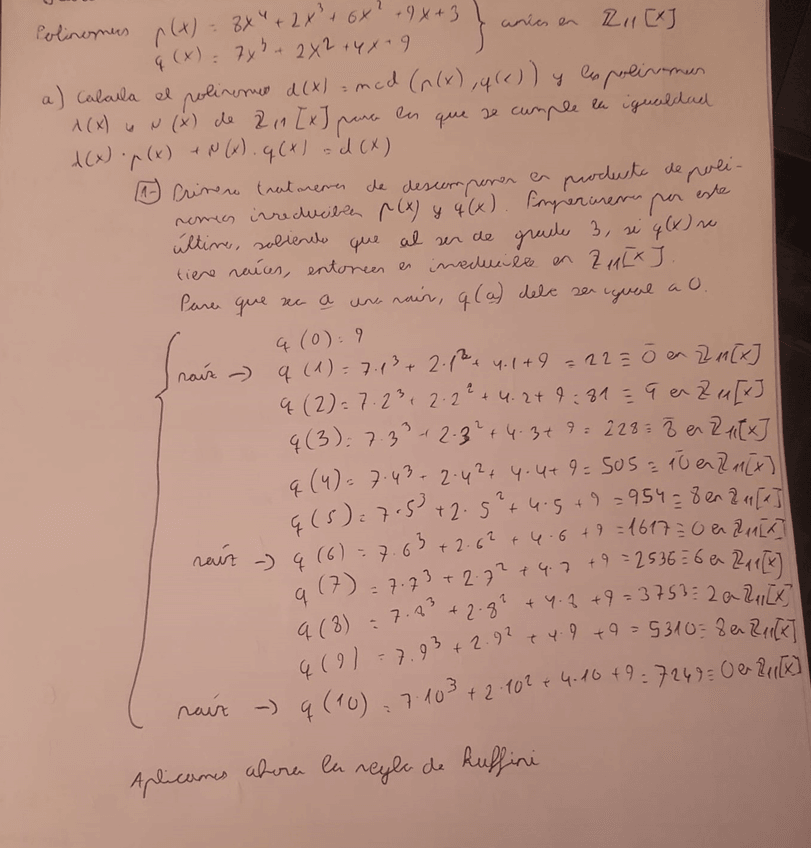 Polinomios p(x) = 8x⁴ + 2x³ + 6x² + 9x + 3 } en Z₁₁[x]
q(x) = 7x³ + 2x² + 4x + 9
a) Calcula el polinomio d(x) = mcd (p(x), q(x)) y los polinomios
λ(x) y μ(x) de Z₁₁[x] para los que se cumple la igualdad
λ(x) · p(x) + μ(x) · q(x) = d(x)
1- Primero trataremos de descomponer en producto de poli-
nomios irreducibles p(x) y q(x). Empezaremos por este
último, sabiendo que al ser de grado 3, si q(x) no
tiene raíces, entonces es irreducible en Z₁₁[x].
Para que sea a una raíz, q(a) debe ser igual a 0.
q(0) = 9
raíz → q(1) = 7·1³ + 2·1² + 4·1 + 9 = 22 ≡ 0 en Z₁₁[x]
q(2) = 7·2³ + 2·2² + 4·2 + 9 = 81 ≡ 9 en Z₁₁[x]
q(3) = 7·3³ + 2·3² + 4·3 + 9 = 228 ≡ 8 en Z₁₁[x]
q(4) = 7·4³ + 2·4² + 4·4 + 9 = 505 ≡ 10 en Z₁₁[x]
q(5) = 7·5³ + 2·5² + 4·5 + 9 = 954 ≡ 8 en Z₁₁[x]
raíz → q(6) = 7·6³ + 2·6² + 4·6 + 9 = 1617 ≡ 0 en Z₁₁[x]
q(7) = 7·7³ + 2·7² + 4·7 + 9 = 2536 ≡ 6 en Z₁₁[x]
q(8) = 7·8³ + 2·8² + 4·8 + 9 = 3753 ≡ 2 en Z₁₁[x]
q(9) = 7·9³ + 2·9² + 4·9 + 9 = 5310 ≡ 8 en Z₁₁[x]
raíz → q(10) = 7·10³ + 2·10² + 4·10 + 9 = 7249 ≡ 0 en Z₁₁[x]
Aplicamos ahora la regla de Ruffini